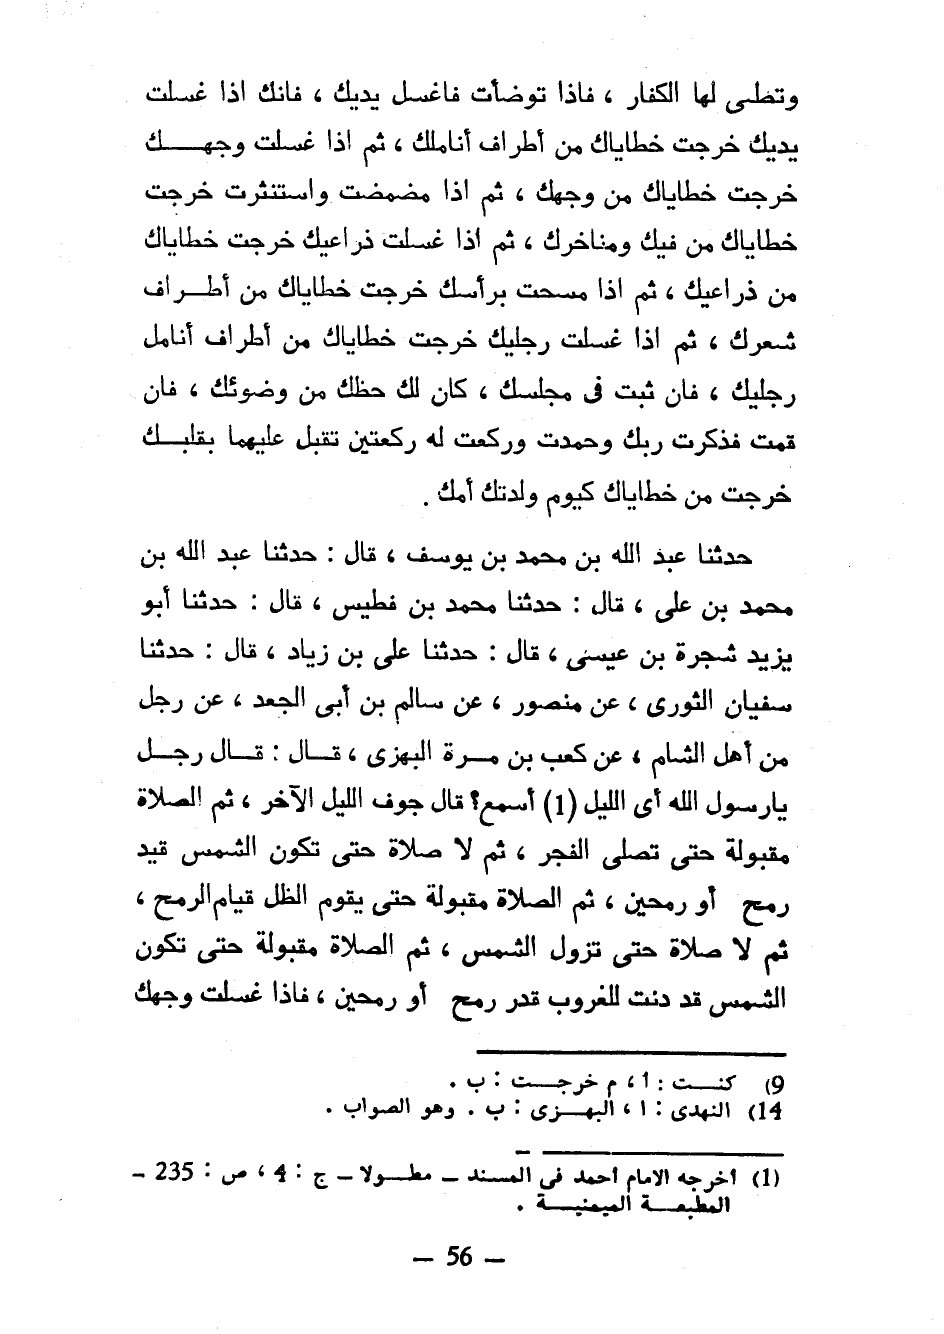 وتصلى لها الكفار ، فاذا توضأت فاغسل يديك ، فانك اذا غسلت
يديك خرجت خطاياك من أطراف أناملك ، ثم اذا غسلت وجهك
خرجت خطاياك من وجهك ، ثم اذا مضمضت واستنثرت خرجت
خطاياك من فيك ومناخرك ، ثم اذا غسلت ذراعيك خرجت خطاياك
من ذراعيك ، ثم اذا مسحت برأسك خرجت خطاياك من أطراف
شعرك ، ثم اذا غسلت رجليك خرجت خطاياك من أطراف أنامل
رجليك ، فان ثبت فى مجلسك ، كان لك حظك من وضوئك ، فان
قمت فذكرت ربك وحمدت وركعت له ركعتين تقبل عليهما بقلبك
خرجت من خطاياك كيوم ولدتك أمك .
حدثنا عبد الله بن محمد بن يوسف ، قال : حدثنا عبد الله بن
محمد بن على ، قال : حدثنا محمد بن فطيس ، قال : حدثنا أبو
يزيد شجرة بن عيسى ، قال : حدثنا على بن زياد ، قال : حدثنا
سفيان الثورى ، عن منصور ، عن سالم بن أبى الجعد ، عن رجل
من أهل الشام ، عن كعب بن مرة البهزى ، قال : قال رجل
يارسول الله أى الليل (1) أسمع؟ قال جوف الليل الآخر ، ثم الصلاة
مقبولة حتى تصلى الفجر ، ثم لا صلاة حتى تكون الشمس قيد
رمح أو رمحين ، ثم الصلاة مقبولة حتى يقوم الظل قيام الرمح ،
ثم لا صلاة حتى تزول الشمس ، ثم الصلاة مقبولة حتى تكون
الشمس قد دنت للغروب قدر رمح أو رمحين ، فاذا غسلت وجهك
9) كنت : ا ، م خرجت : ب .
14) النهدى : ا ، البهزى : ب . وهو الصواب .
(1) أخرجه الامام أحمد فى المسند – مطولا – ج : 4 ، ص : 235 –
المطبعة الميمنية .
– 56 –